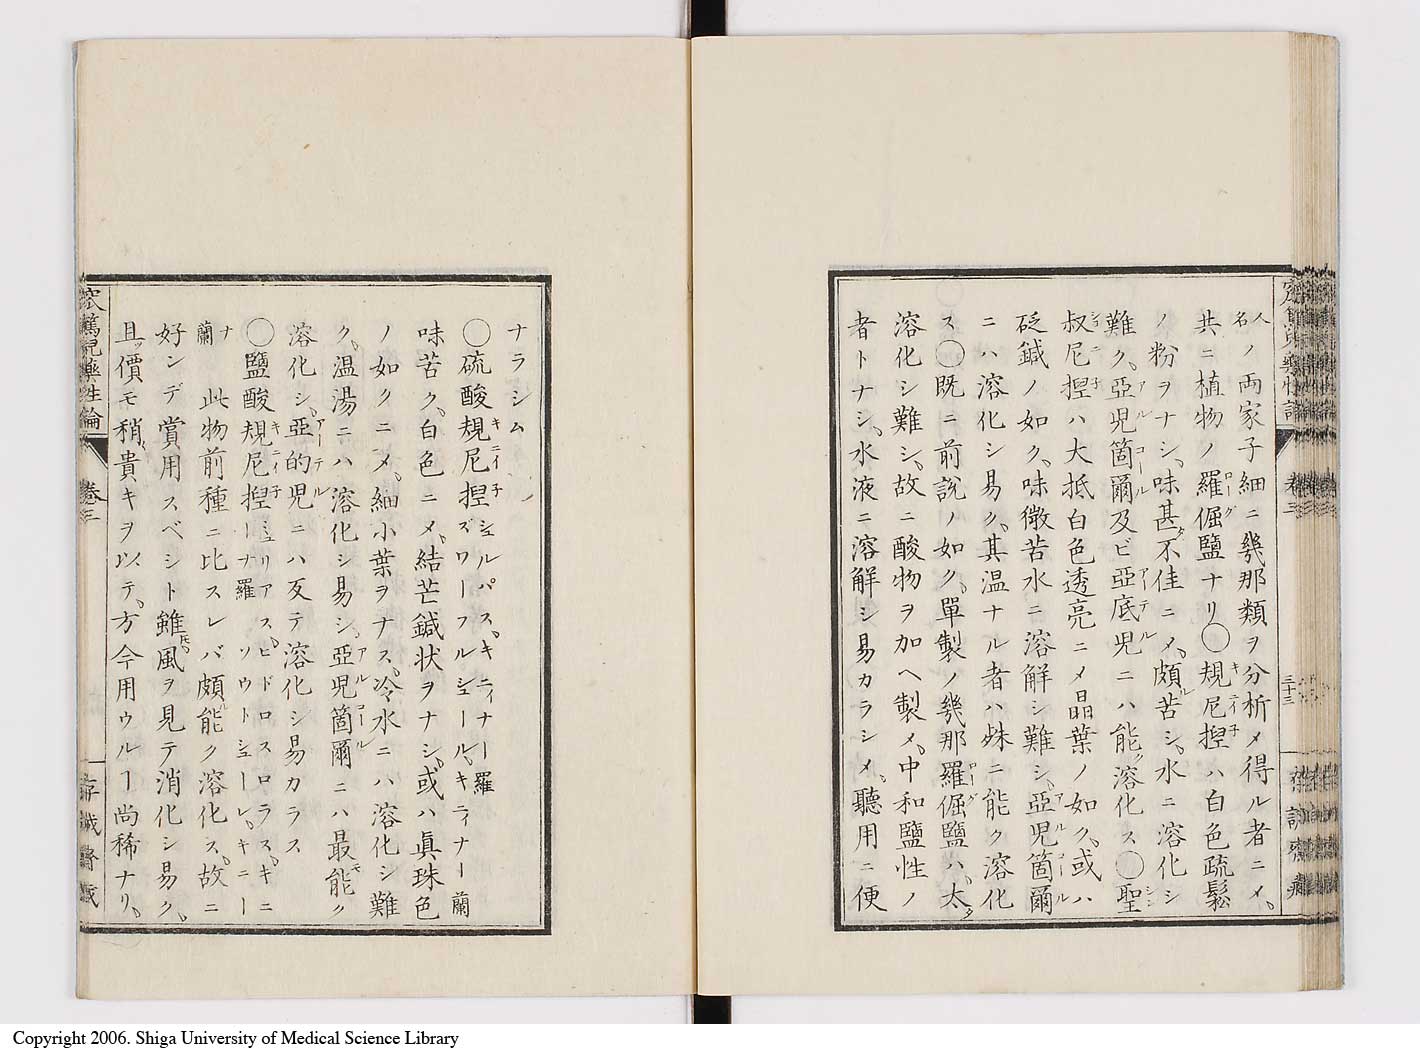 人名ノ両家子細ニ幾那類ヲ分析メ得ル者ニメ、
共ニ植物ノ羅倔鹽ナリ◯規尼揑ハ白色疏鬆
ノ粉ヲナシ、味甚タ不佳ニメ、頗ル苦シ、水ニ溶化シ
難ク、亞児箇爾及ビ亞底児ニハ能ク溶化ス◯聖
叔尼揑ハ大抵白色透亮ニメ晶葉ノ如ク、或ハ
砭鍼ノ如ク、味微苦水ニ溶解シ難シ、亞児箇爾
ニハ溶化シ易ク、其温ナル者ハ殊ニ能ク溶化
ス◯既ニ前説ノ如ク、單製ノ幾那羅倔鹽ハ、太タ
溶化シ難シ、故ニ酸物ヲ加ヘ製メ、中和鹽性ノ
者トナシ、水液ニ溶解シ易カラシメ、聽用ニ便
卷三
三十三
ナラシム
◯硫酸規尼揑シュルパス、キニィナー羅ズワーフルシュール、キニィナー蘭
味苦ク、白色ニメ、結芒鍼状ヲナシ、或ハ眞珠色
ノ如クニメ、細小葉ヲナス、冷水ニハ溶化シ難
ク、温湯ニハ溶化シ易シ、亞児箇爾ニハ最モ能ク
溶化シ、亞的児ニハ反テ溶化シ易カラス
◯鹽酸規尼揑ミュリアス、ヒドロスロラス、キニーナ羅ソウトシューレ、キニーナ蘭
此物前種ニ比スレバ頗ル能ク溶化ス、故ニ
好ンデ賞用スベシト雖モ、風ヲ見テ消化シ易ク、
且ッ價モ稍貴キヲ以テ、方今用ウルー尚稀ナリ、
窊篤児藥性論
卷三
存誠齋蔵
Copyright 2006. Shiga University of Medical Science Library